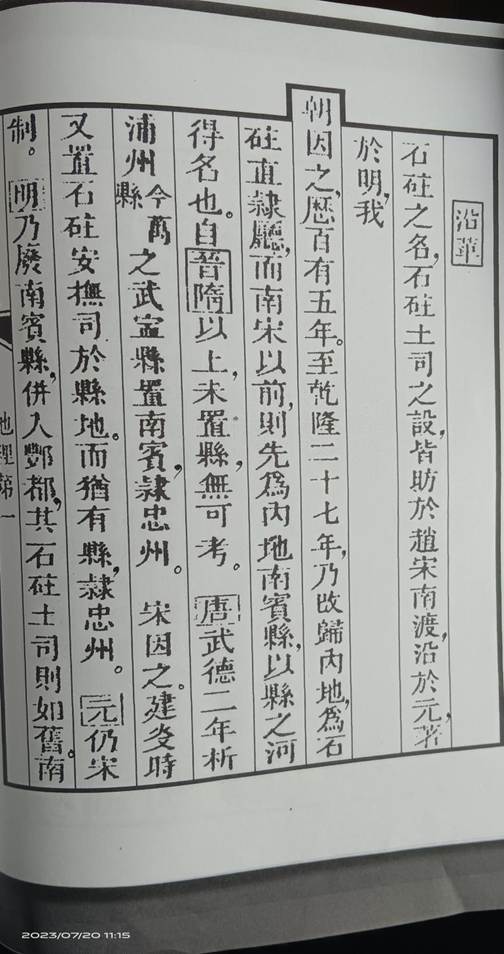 沿革
石砫之名，石砫土司之設，皆昉於趙宋南渡，沿於元，著
於明，我
朝因之，歷百有五年。至乾隆二十七年，乃改歸內地，為石
砫直隸廳，而南宋以前，則先為內地南賓縣，以縣之河
得名也。自晉隋以上，未置縣，無可考。唐武德二年析
浦州今萬縣之武寍縣置南賓，隸忠州。宋因之。建炎時
又置石砫安撫司於縣地。而猶有縣，隸忠州。元仍宋
制。明乃廢南賓縣，併入酆都，其石砫土司則如舊。南
地理第一
2023/07/20 11:15